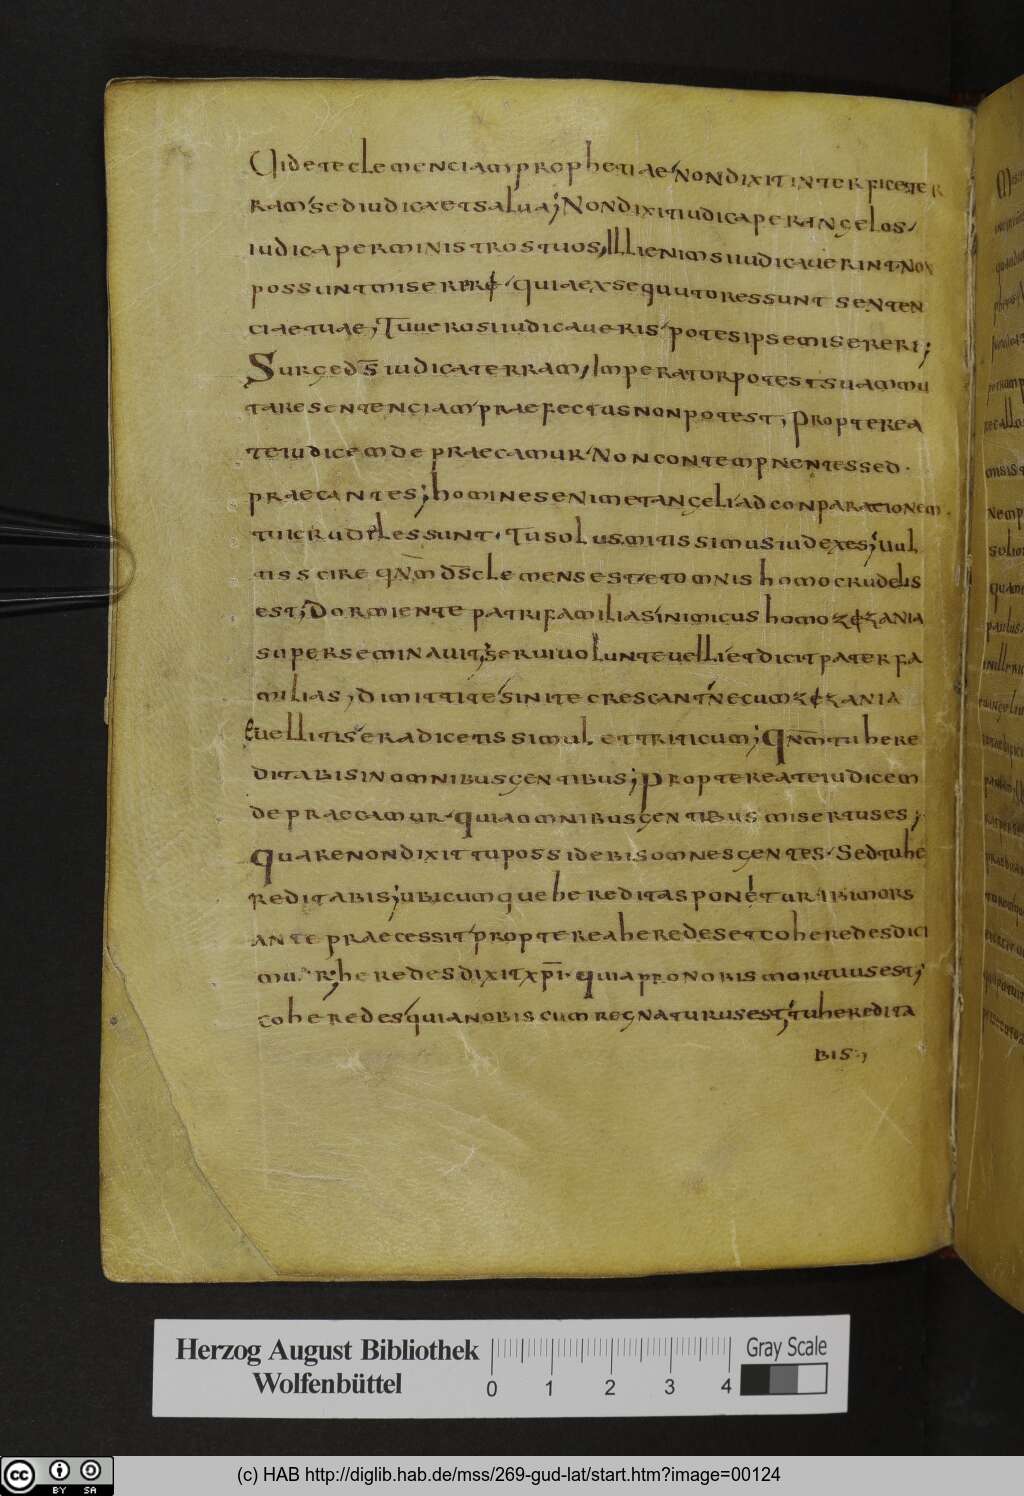 Uidete clemenciam prophetiae, Non dixit interfice ter
ram, sed iudica et salua; Non dixit iudica per angelos,
iudica per ministros tuos, Illi enim si iudicauerint, non
possunt misereri, quia exsequutores sunt senten
ciae tuae, Tu uero si iudicaueris, potes ipse misereri;
Surge ds̅ iudica terram, Imperator potest suam mu
tare sentenciam, praefectus non potest, Propterea
te iudicem depraecamur, Non contempnentes sed.
praecantes; homines enim et angeli, ad conparationem.
tui crudeles sunt. Tu solus mitissimus iudex es; Uul
tis scire qnm̅ ds̅ clemens est, et omnis homo crudelis
est; Dormiente patrifamilias, inimicus homo zezania
superseminauit, serui uolunt euelli, et dicit paterfa
milias, dimittite sinite crescant, ne cum zezania
euellitis, eradicetis simul et triticum; Qnm̅ tu here
ditabis in omnibus gentibus; Propterea te iudicem
depraecamur, quia omnibus gentibus misertus es;
Quare non dixit tu possidebis omnes gentes. Sed tu he
reditabis; ubicumque hereditas ponetur, ibi mors
ante praecessit, propterea heredes et coheredes dici
mur; heredes dixit xp̅i. quia pro nobis mortuus est;
coheredes, quia nobiscum regnaturus est, tu heredita
bis;
Herzog August Bibliothek
Wolfenbüttel
0 1 2 3 4
Gray Scale
cc BY SA
(c) HAB http://diglib.hab.de/mss/269-gud-lat/start.htm?image=00124